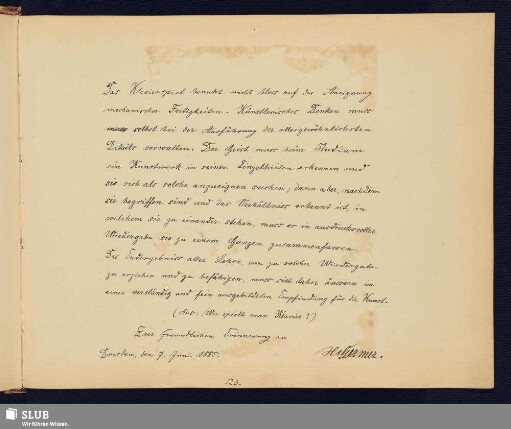 Das Klavierspiel beruht nicht bloss auf der Aneignung
mechanischer Fertigkeiten. Künstlerisches Denken muss
selbst bei der Ausführung der allergewöhnlichsten
Details vorwalten. Der Geist muss beim Studium
ein Kunstwerk in seinen Einzelheiten erkennen und
sie sich als solche anzueignen suchen; dann aber, nachdem
sie begriffen sind und das Verhältniss erkannt ist, in
welchem sie zu einander stehen, muss er in ausdrucksvoller
Wiedergabe sie zu einem Ganzen zusammenfassen.
Das Endergebniss aller Lehre, um zu solcher Wiedergabe
zu erziehen und zu befähigen, muss sich daher äussern in
einer verständig und fein ausgebildeten Empfindung für die Kunst.
(Aus: Wie spielt man Klavier?)
Zur freundlichen Erinnerung an
Dresden, den 7. Juni. 1885. H. Germer.
123.
SLUB
Wir führen Wissen.